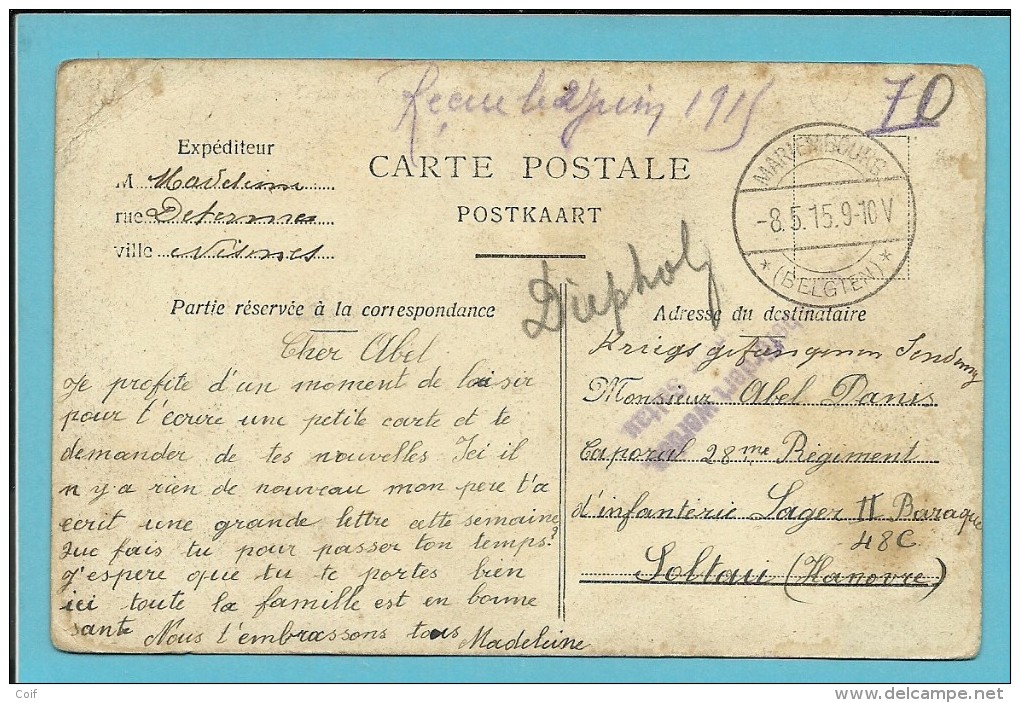 Reçu le 2 Juin 1915
70
Expéditeur
M Madeleine
rue
ville Nismes
CARTE POSTALE
POSTKAART
MARIEMBOURG
-8.5.15.9-10V
* (BELGIEN) *
Diepholz
Partie réservée à la correspondance
Cher Abel
Je profite d'un moment de loisir
pour t'ecrire une petite carte et te
demander de tes nouvelles Ici il
n y a rien de nouveau mon pere t'a
ecrit une grande lettre cette semaine
Que fais tu pour passer ton temps?
J'espere que tu te portes bien
ici toute la famille est en bonne
sante Nous t'embrassons tous Madeleine
Adresse du destinataire
Kriegsgefangenen Sendung
Monsieur Abel Danis
Caporal 28me Régiment
d'infanterie Lager II Baraque
48C
Soltau (Hanovre)
Coif
www.delcampe.net